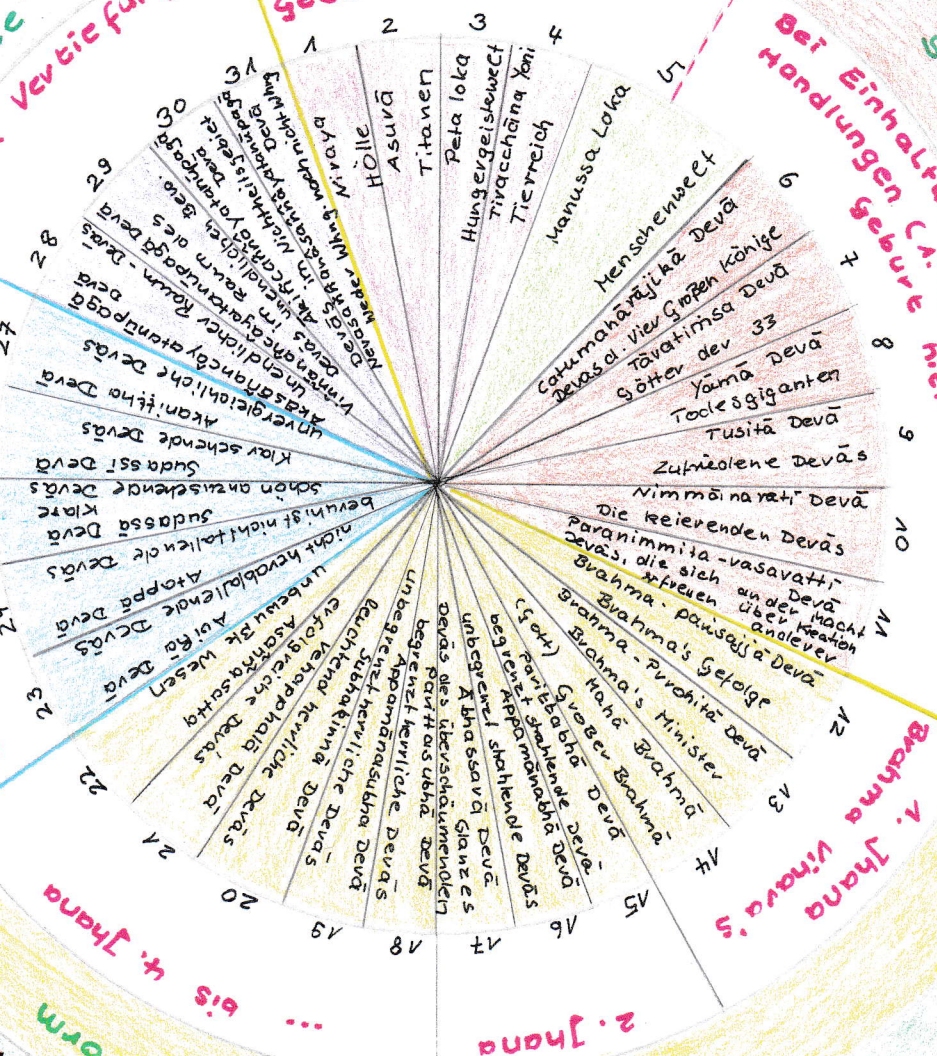 1
Niraya
Hölle
2
Asurā
Titanen
3
Peta loka
Hungergeisterwelt
4
Tiracchāna Yoni
Tierreich
5
Manussa Loka
Menschenwelt
6
Catumahārājikā Devā
Devas d. Vier Großen Könige
7
Tāvatimsa Devā
Götter der 33
8
Yāmā Devā
Todesgiganten
9
Tusitā Devā
Zufriedene Devās
10
Nimmānarati Devā
Die kreierenden Devās
11
Paranimmita-vasavatti
Devā
Devās, die sich an der Macht
erfreuen über Kreation
anderer
12
Brahma-pārisajjā Devā
Brahma's Gefolge
13
Brahma-Purohitā Devā
Brahma's Minister
14
Mahā Brahmā
Großer Brahmā
(Gott)
15
Parittābhā Devā
begrenzt strahlende Devā
16
Appamānābhā Devā
unbegrenzt strahlende Devās
17
Ābhassarā Devā
Devās des überschäumenden
Glanzes
18
Parittasubhā Devā
begrenzt herrliche Devās
19
Appamānasubhā Devā
unbegrenzt herrliche Devās
20
Subhakinnā Devā
leuchtend herrliche Devās
21
Vehapphalā Devā
erfolgreiche Devās
22
Asaññasatta
unbewußte Wesen
23
Aviha Devā
nicht herabfallende Devās
24
Atappā Devā
beruhigt nichtfallende Devās
Sudassā Devā
Klare
schön anzusehende Devās
Sudassī Devā
Klar sehende Devās
27
Akanittha Devā
unvergleichliche Devās
28
Ākāsānancāyatanūpagā
Devā
unendlicher Raum-Devās
29
Devās im
unendlicher Raum
30
Devā
31
Devā
Bei Einhalt
Handlungen (1.
Geburt
1. Jhana
Brahma
Vihara's
2. Jhana
... bis 4. Jhana
orm